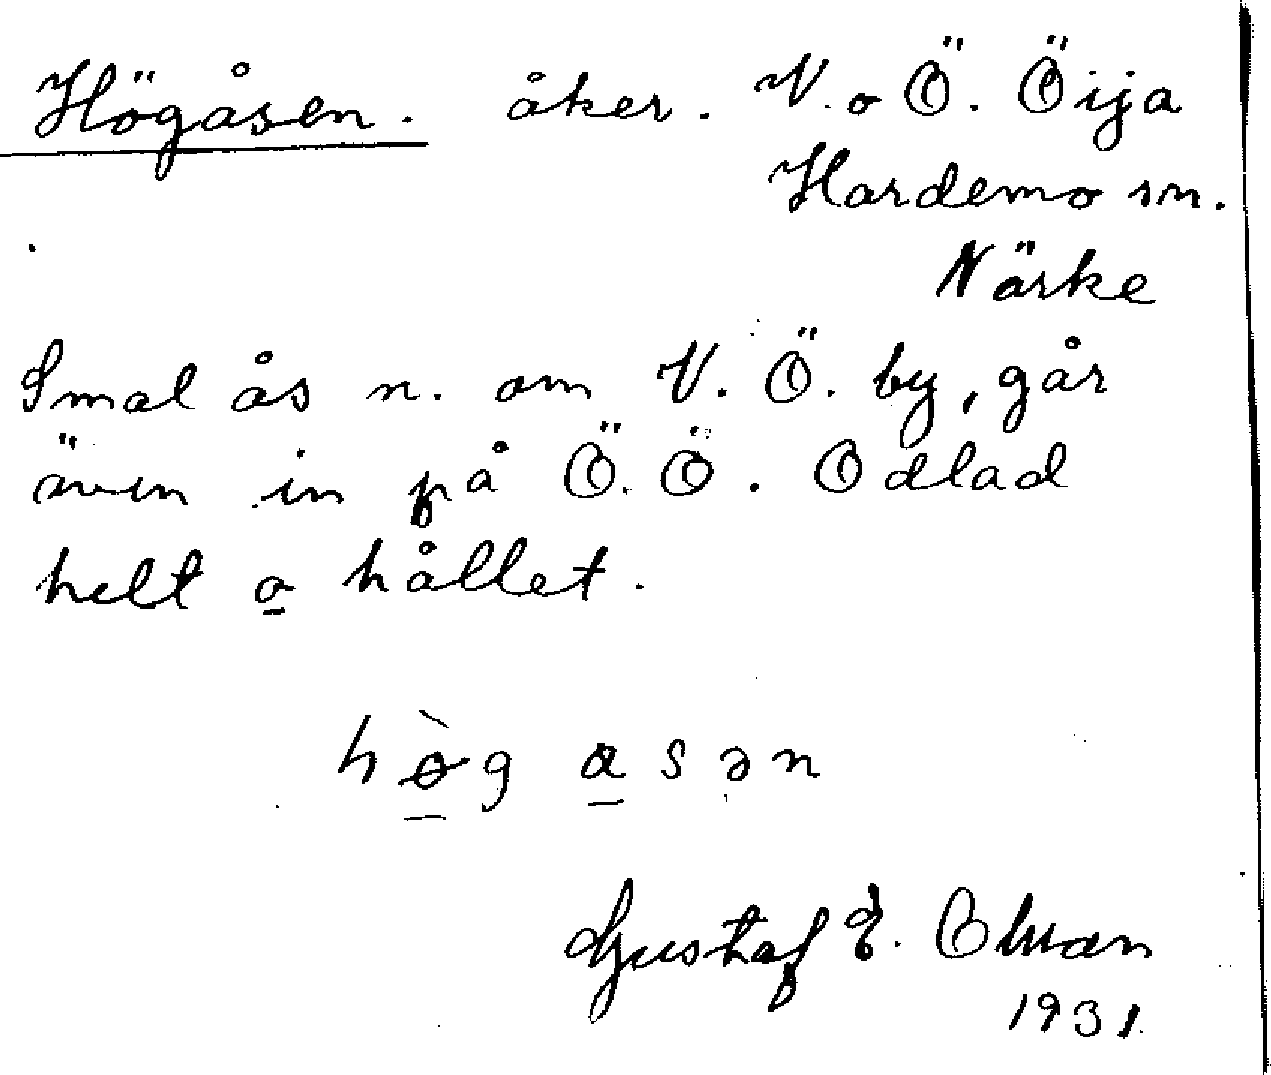 Högåsen. åker. V. o Ö. Öija
Hardemo sn.
Närke
Smal ås n. om V. Ö. by, går
även in på Ö. Ö. Odlad
helt o hållet.
hø̀g ɑsən
Gustaf E.
1931